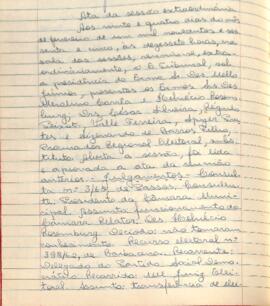 Ata da sessão extraordinária
Aos vinte e quatro dias do mês
de fevereiro de um mil novecentos e ses-
senta e cinco, às dezessete horas, na
sala das sessões, reuniu-se, extra-
ordinariamente, o E. Tribunal, sob
a presidência do Exmo. Sr. Des. Mello
Júnior, presentes os Exmos. Srs. Des.
Horta e Helvécio Rosen-
burg, Drs.
Ferreira,
e de Barros Filho,
Procurador Regional Eleitoral, subs-
tituto. Aberta a sessão, foi lida
e aprovada a ata da reunião
anterior. - Julgamentos - Consul-
ta nº 3/65, de Passos. Consulen-
te, Presidente da Câmara Muni-
cipal. Assunto: funcionamento da
Câmara. Relator: Des. Helvécio
Rosenburg. Decisão: não tomaram
conhecimento. Recurso eleitoral nº
398/62, de Barbacena. Recorrente:
Delegado do Partido Social Demo-
crático. Recorrido: MM. Juiz Elei-
toral. Assunto: transferência de elei-